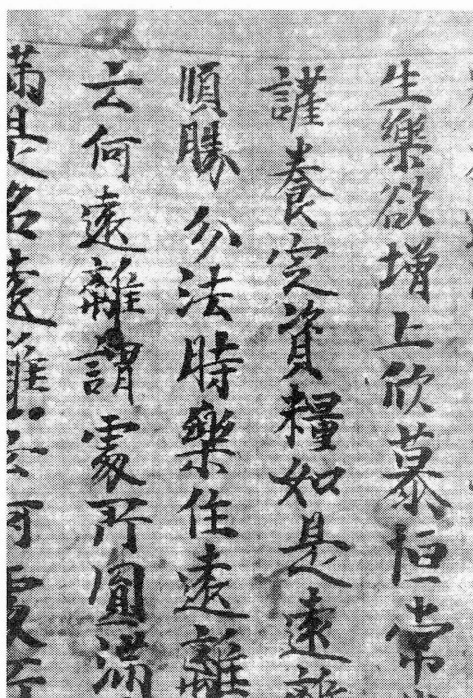 生樂欲增上欣慕恒常
謹養㝎資糧如是遠離
順勝分法時樂住遠離
云何遠離謂處所圓滿
滿是名遠離云何處所